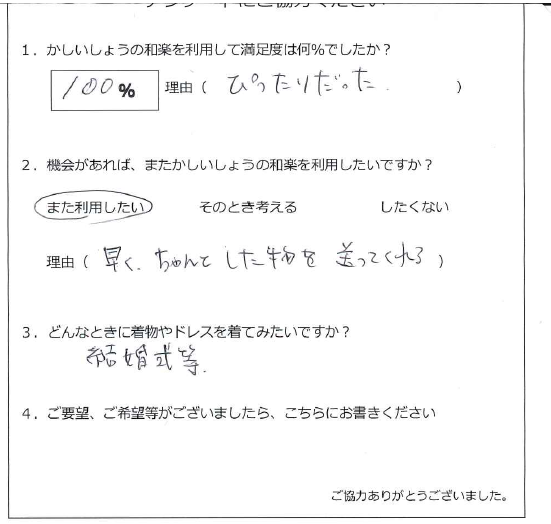 アンケートにご協力ください
1．かしいしょうの和楽を利用して満足度は何％でしたか？
100％ 理由（ ぴったりだった. ）
2．機会があれば、またかしいしょうの和楽を利用したいですか？
また利用したい そのとき考える したくない
理由（ 早く、ちゃんとした物を送ってくれる ）
3．どんなときに着物やドレスを着てみたいですか？
結婚式等.
4．ご要望、ご希望等がございましたら、こちらにお書きください
ご協力ありがとうございました。